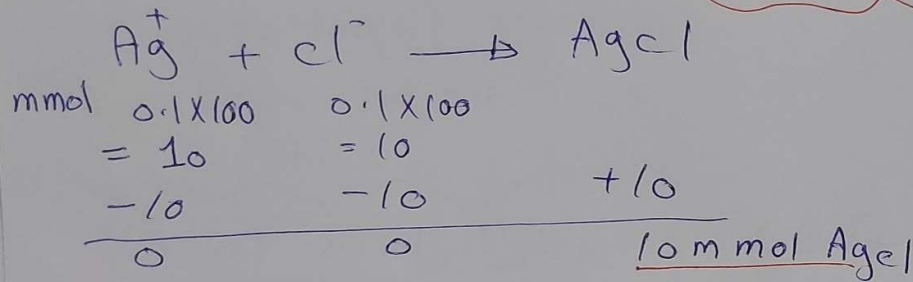 Ag⁺ + cl⁻ → Agcl
mmol 0.1X100 0.1X100
= 10 = 10
-10 -10 +10
0 0 10 m mol Agcl